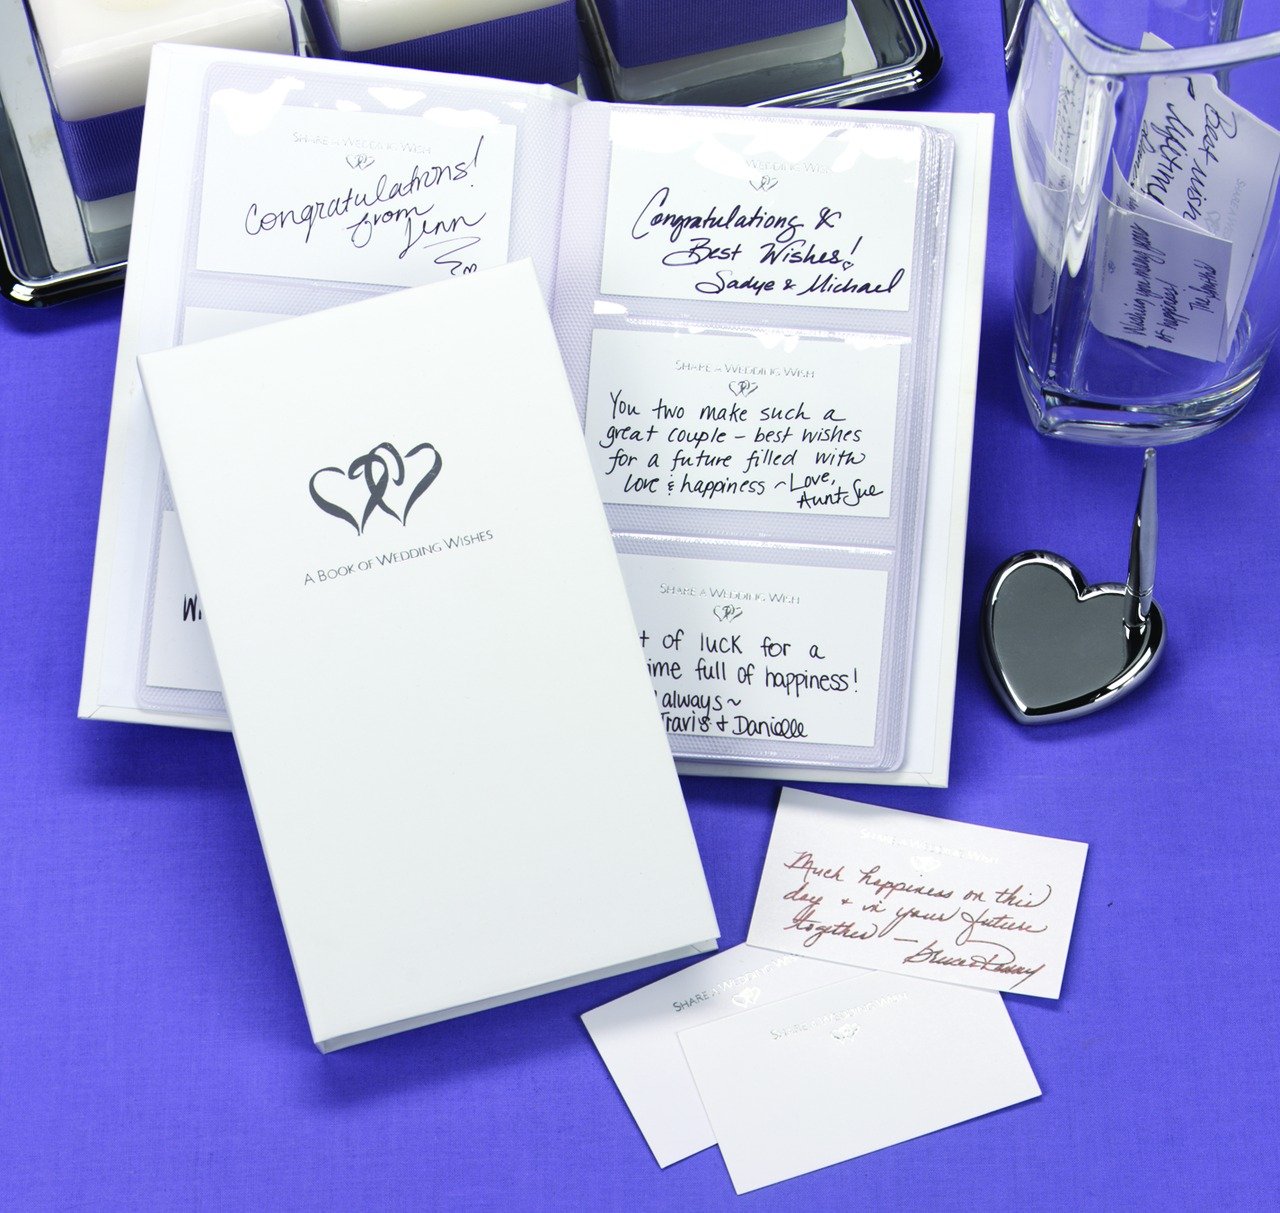 SHARE A WEDDING WISH
Congratulations!
from
Jenn
WEDDING WISH
Congratulations &
Best Wishes!
Sadye & Michael
SHARE A WEDDING WISH
You two make such a
great couple – best wishes
for a future filled with
love & happiness ~ Love,
Aunt Sue
SHARE A WEDDING WISH
t of luck for a
ime full of happiness!
always~
Travis + Danielle
A BOOK OF WEDDING WISHES
Best wish
SHARE A WEDDING WISH
Much happiness on this
day + in your future
together –
SHARE A WEDDING
SHARE A WEDDING WISH